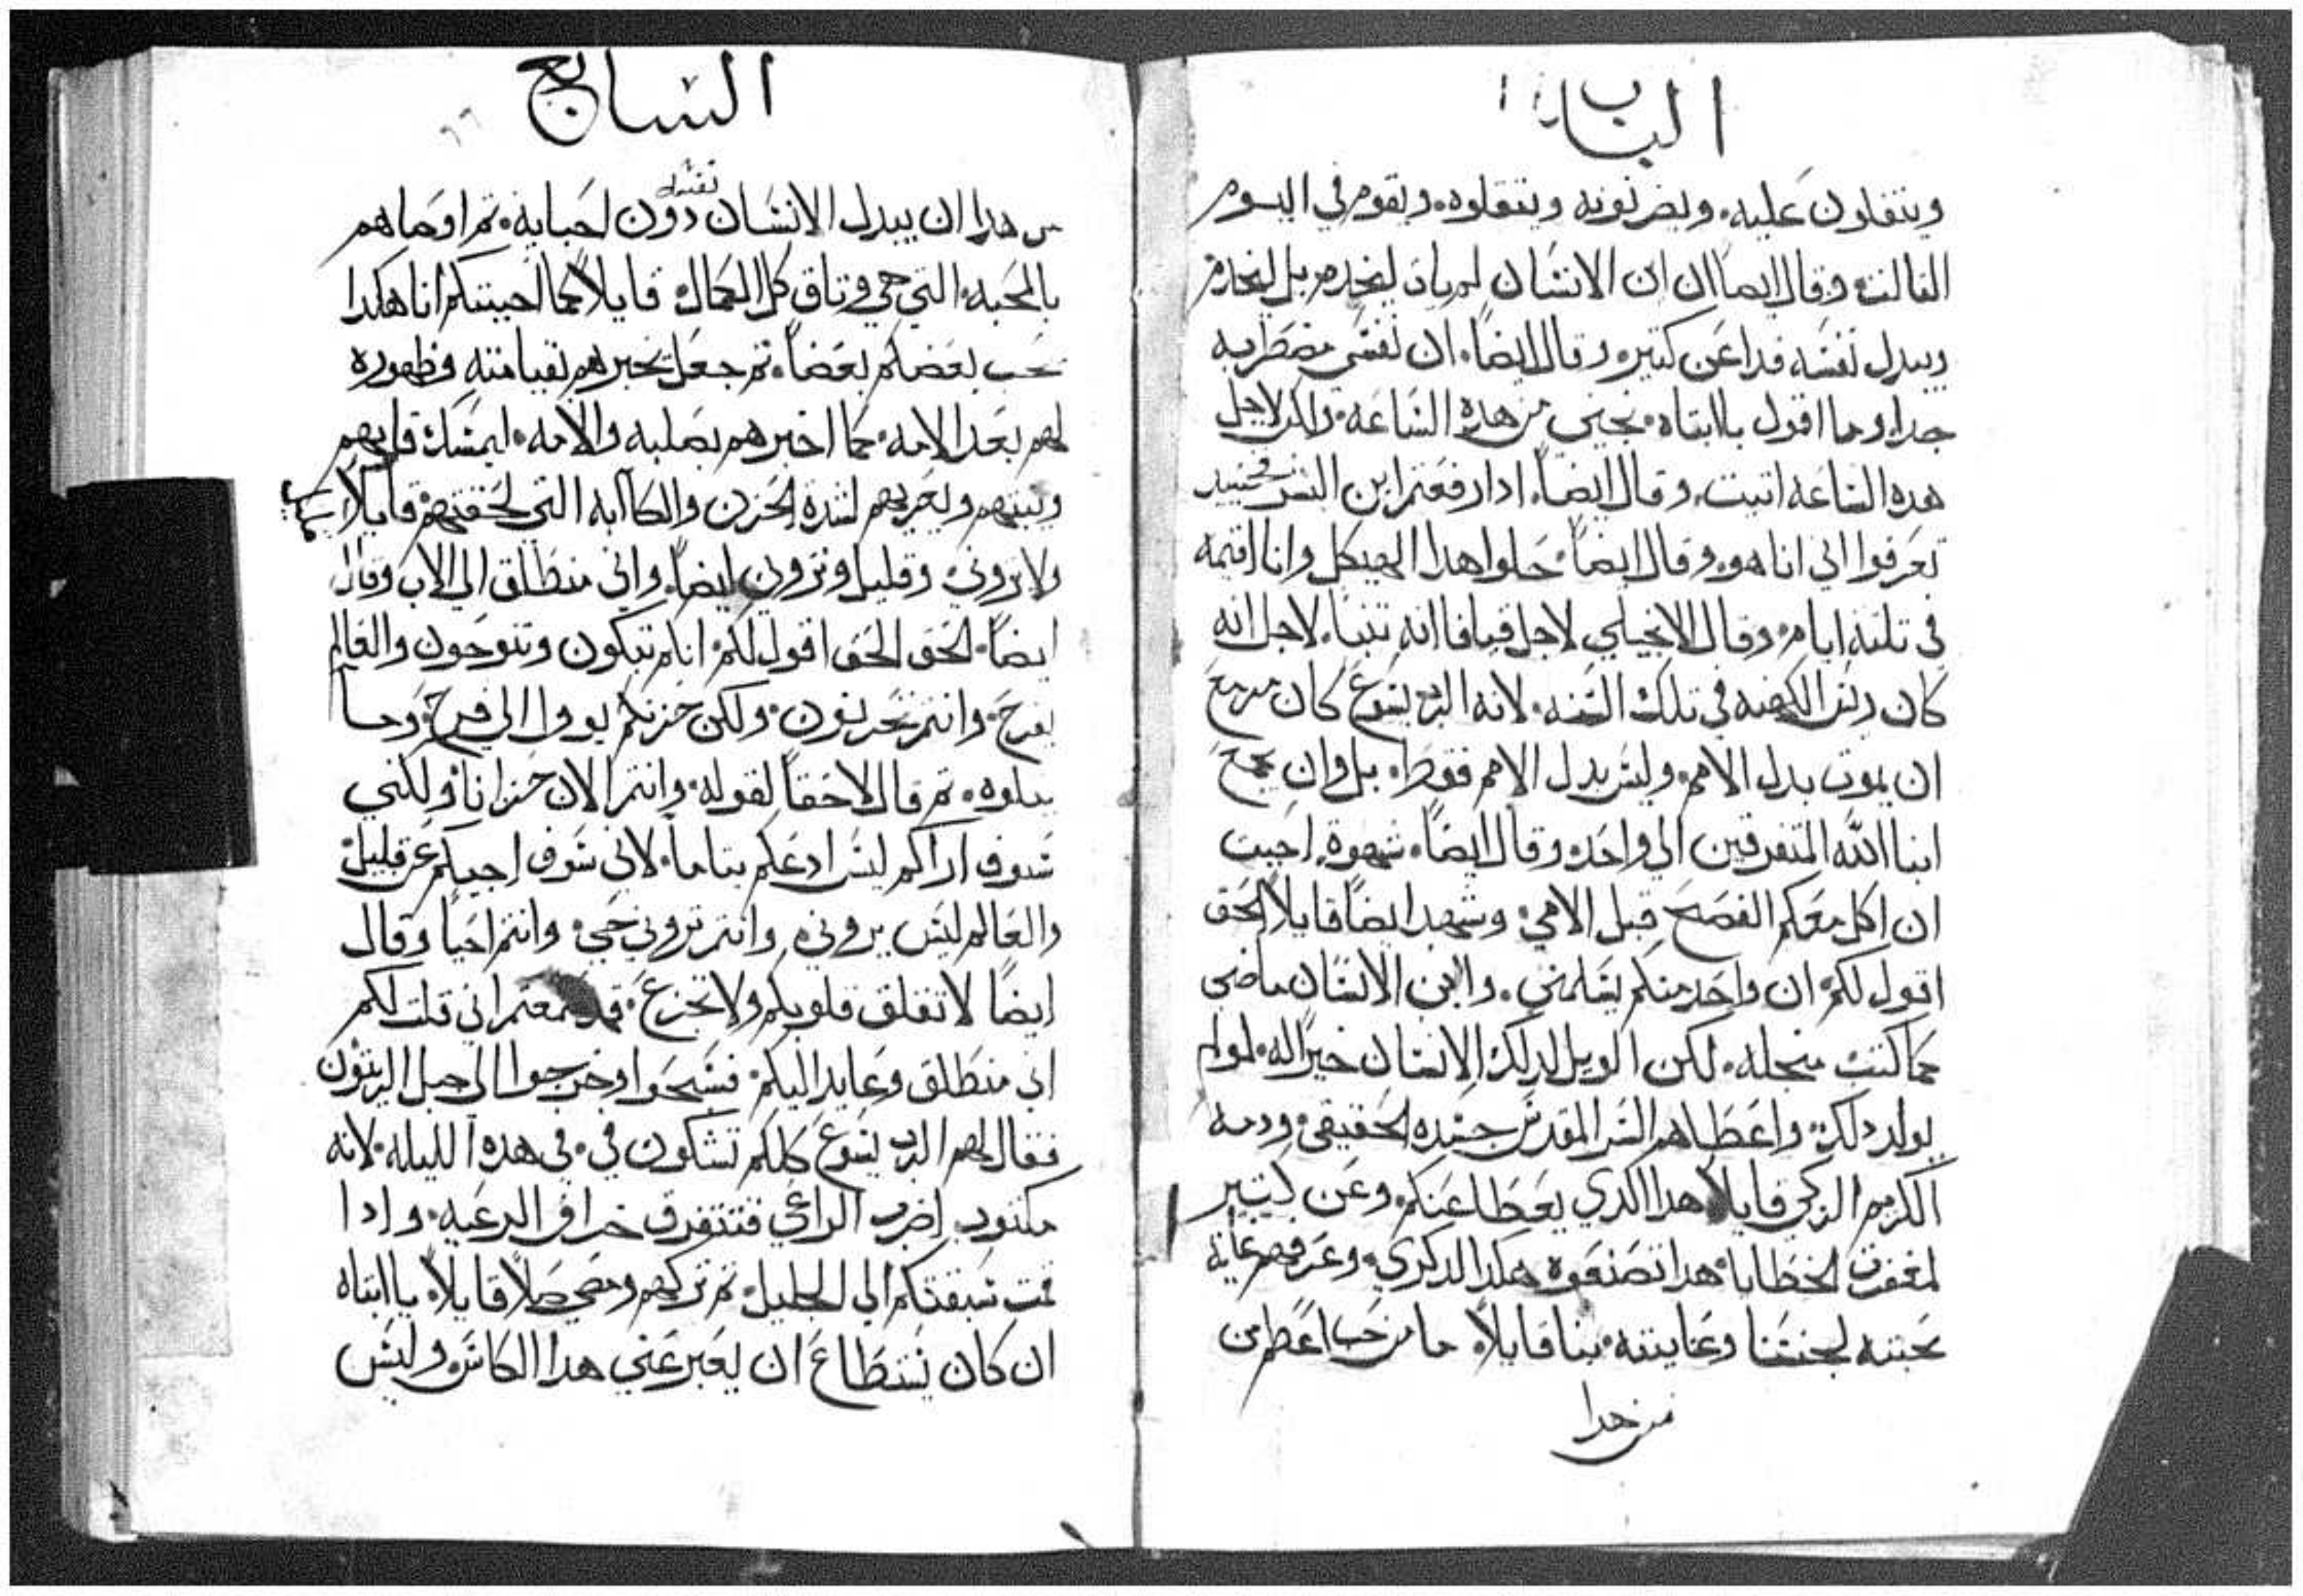 الباب
ويتفلون عليه. ويضربونه ويقتلوه. ويقوم في اليوم
التالت. وقال ايضاً ان ابن الانسان لم يات ليُخدم بل ليَخدم
ويبدل نفسه فدا عن كتير. وقال ايضاً. ان نفسي مضطربه
جدا. وما اقول يا ابتاه. نجيني من هده الساعه. ولكن لاجل
هده الساعه اتيت. وقال ايضاً. ادا رفعتم ابن البشر فحينيد
تعرفوا اني انا هو. وقال ايضاً. حلوا هدا الهيكل وانا اقيمه
في تلتة ايام. وقال الانجيلي لاجل قيافا انه تنبا. لاجل انه
كان ريس الكهنه في تلك السنه. لانه الرب يسوع كان مزمع
ان يموت بدل الامم. وليس بدل الامم فقط. بل وان يجمع
ابنا الله المتفرقين الي واحد. وقال ايضاً. شهوة احببت
ان اكل معكم الفصح قبل الامي. وشهد ايضاً قايلاً الحق
اقول لكم ان واحد منكم يسلمني. وابن الانسان ماضي
كما كتب منجله. لكن الويل لدلك الانسان خيراً له. لو لم
يولد دلك. واعطاهم السر المقدس جسده الحقيقي. ودمه
الكريم الزكي قايلاً هدا الدي يعطا عنكم. وعن كتير
لمغفرت الخطايا. هدا تصنعوه هكدا لدكري. وعرفهم غاية
محبته لجنسنا وعنايته بنا قايلاً. ما من حب اعظم من
من هدا
السابع
٦٦
من هدا ان يبدل الانسان نفسه دون احبايه. تم اوصاهم
بالمحبه التي هي وتاق كل الكمال قايلاً كما احببتكم انا هكدا
يحب بعضكم بعضاً. تم جعل يخبرهم بقيامته وظهوره
لهم بعد الامه. كما اخبرهم بصلبه والامه. ليمسك قلوبهم
ويتبتهم ويعزيهم لشدة الحزن والكاابه التي لحقتهم قايلاً
ولا تروني. وقليل وتروني ايضاً. واني منطلق الي الاب وقال
ايضاً. الحق الحق اقول لكم. انكم تبكون وتنوحون والعالم
يفرح. وانتم تحزنون. ولكن حزنكم يوول الي فرح. وما
يتلوه. تم قال لاحقاً لقوله. وانتم الان حزانا. ولكني
سوف اراكم ليس ادعكم يتاما. لاني سوف اجيكم عن قليل
والعالم ليس يروني. وانتم تروني حي. وانتم احيا وقال
ايضاً لا تقلق قلوبكم ولا تجزع. قد سمعتم اني قلت لكم
اني منطلق وعايد اليكم. فسبحوا وخرجوا الي جبل الزيتون
فقال لهم الرب يسوع كلكم تشكون في. في هده الليله. لانه
مكتوب. اضرب الراعي فتتفرق خراف الرعيه. وادا
قمت سبقتكم الي الجليل. تم تركهم ومضي صلاً قايلاً. يا ابتاه
ان كان يستطاع ان يعبر عني هدا الكاس. وليس